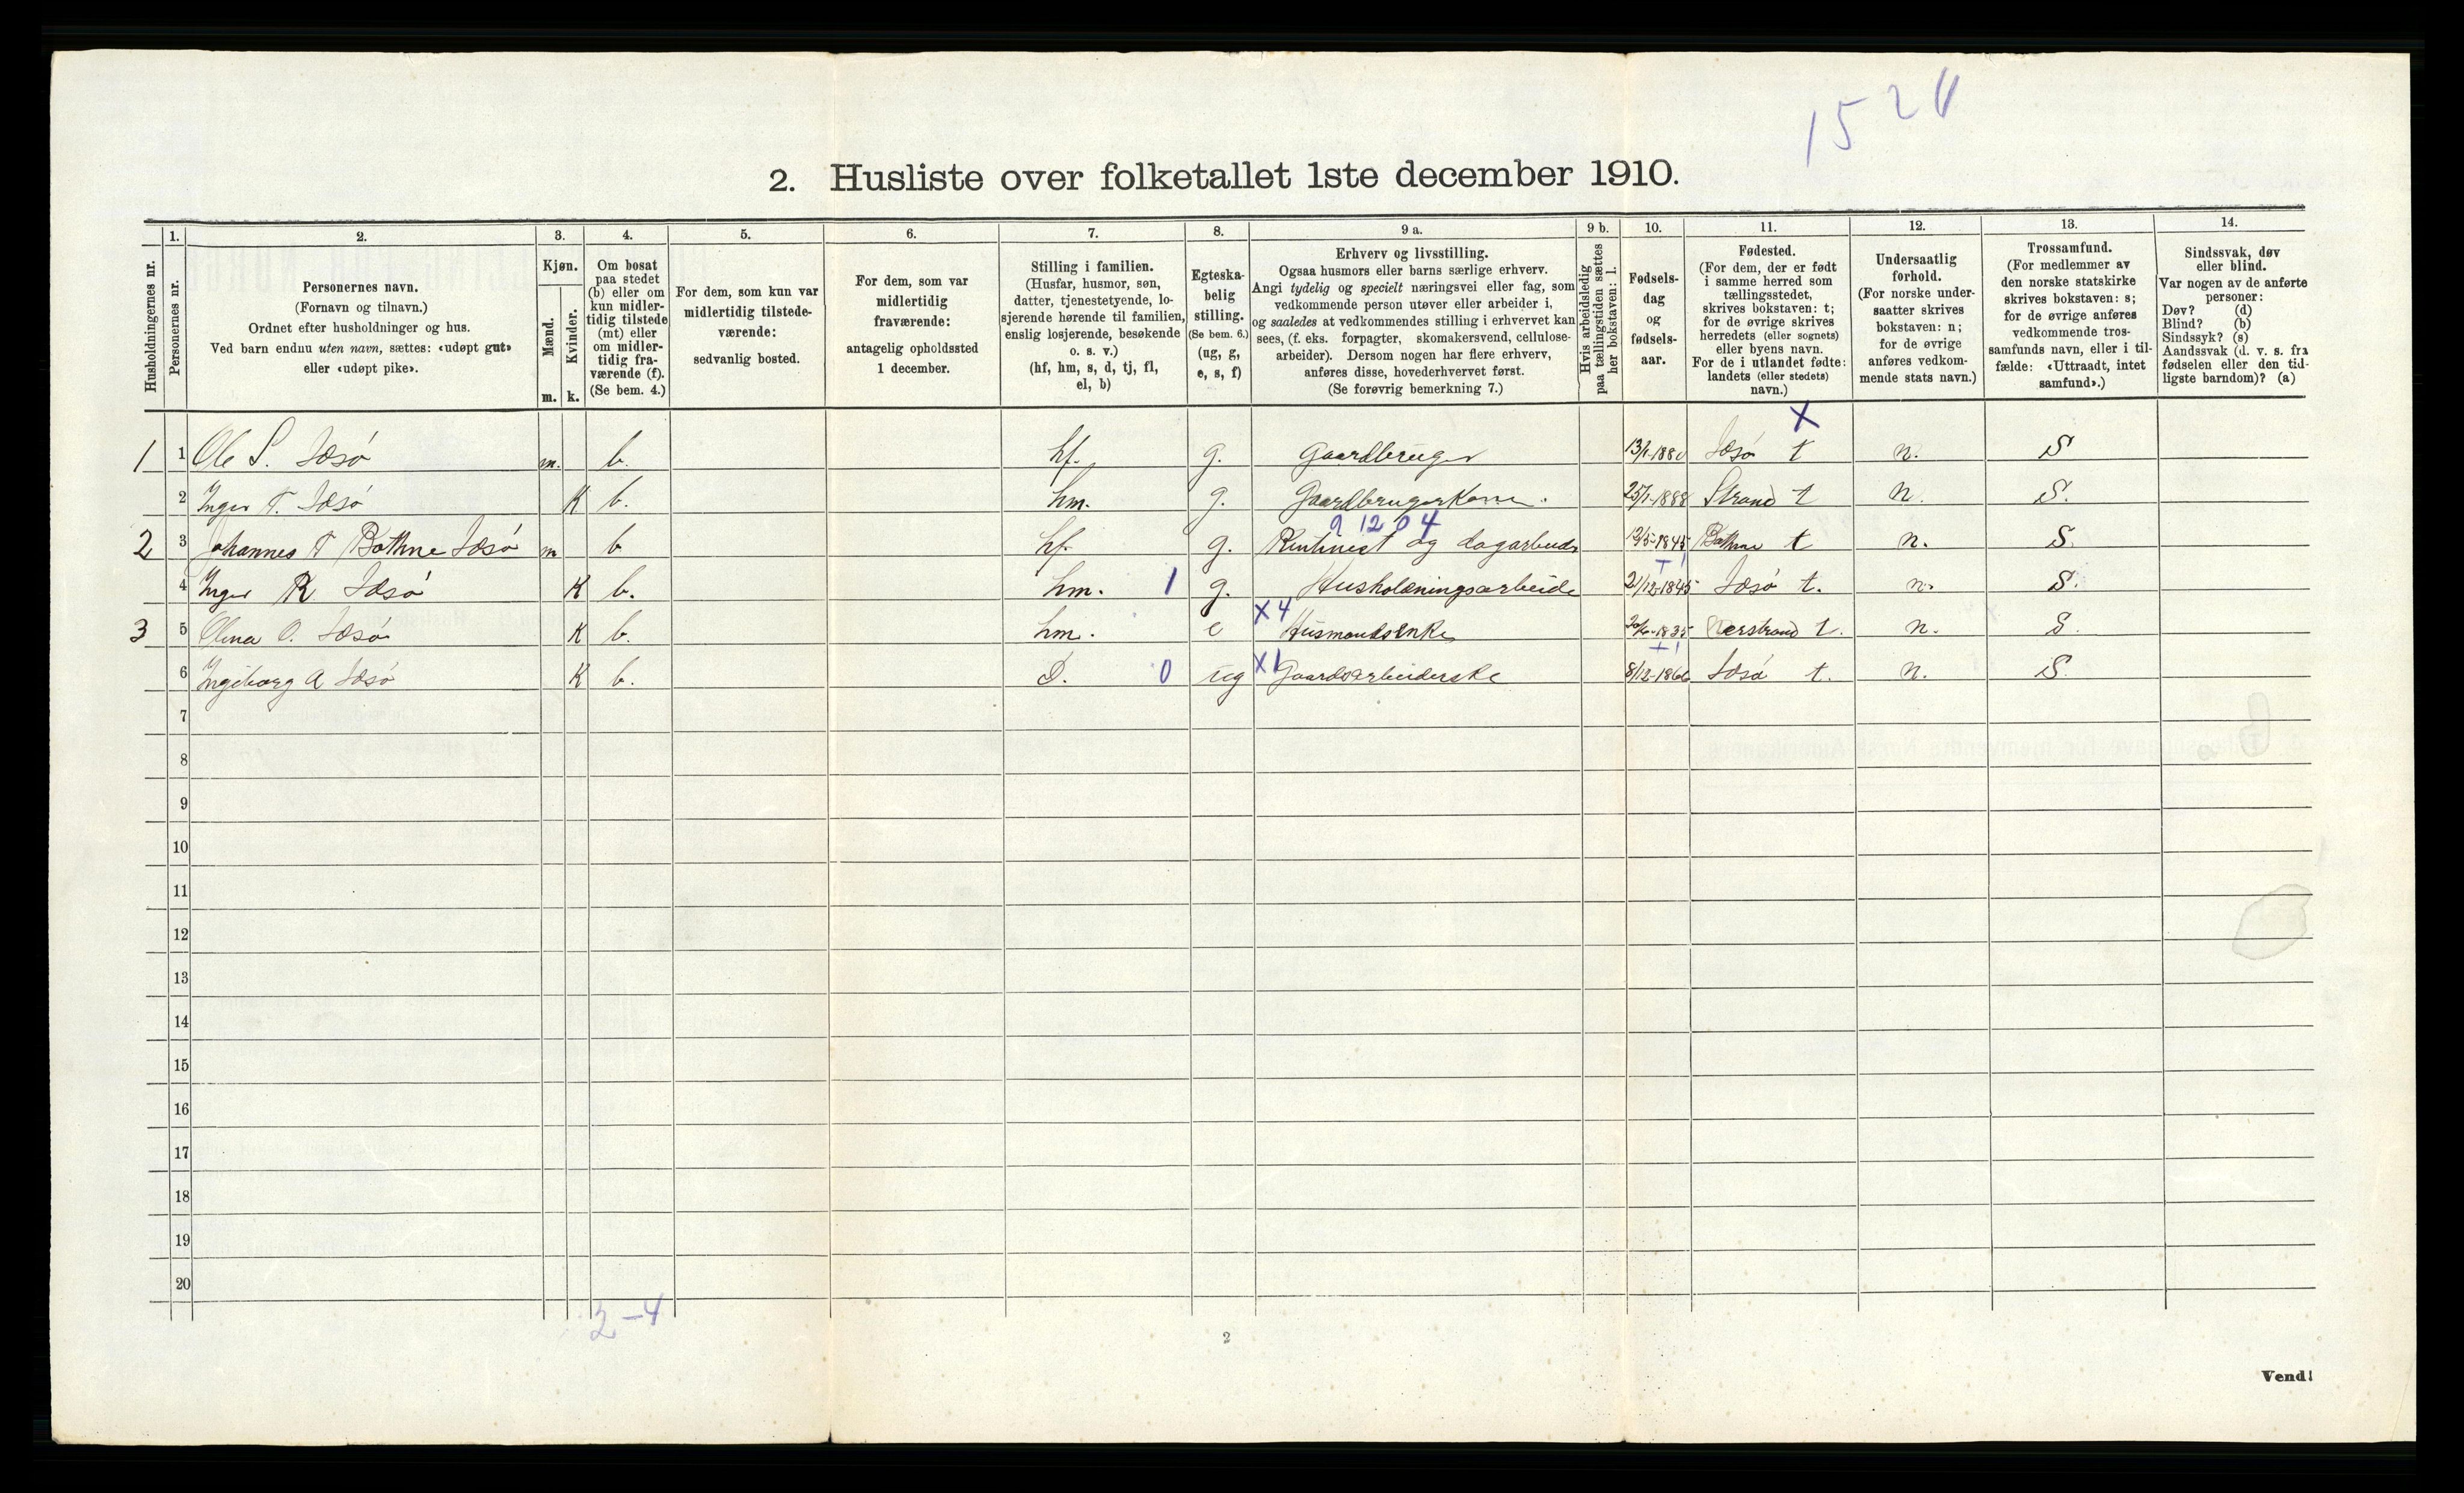 2. Husliste over folketallet 1ste december 1910.
Husholdningernes nr.
1.
Personernes nr.
2.
Personernes navn.
(Fornavn og tilnavn.)
Ordnet efter husholdninger og hus.
Ved barn endnu uten navn, sættes: «udøpt gut»
eller «udøpt pike».
3.
Kjøn.
Mænd.
Kvinder.
m. k.
4.
Om bosat
paa stedet
(b) eller om
kun midler-
tidig tilstede
(mt) eller
om midler-
tidig fra-
værende (f).
(Se bem. 4.)
5.
For dem, som kun var
midlertidig tilstede-
værende:
sedvanlig bosted.
6.
For dem, som var
midlertidig
fraværende:
antagelig opholdssted
1 december.
7.
Stilling i familien.
(Husfar, husmor, søn,
datter, tjenestetyende, lo-
sjerende hørende til familien,
enslig losjerende, besøkende
o. s. v.)
(hf, hm, s, d, tj, fl,
el, b)
8.
Egteska-
belig
stilling.
(Se bem. 6.)
(ug, g,
e, s, f)
9 a.
Erhverv og livsstilling.
Ogsaa husmors eller barns særlige erhverv.
Angi tydelig og specielt næringsvei eller fag, som
vedkommende person utøver eller arbeider i,
og saaledes at vedkommendes stilling i erhvervet kan
sees, (f. eks. forpagter, skomakersvend, cellulose-
arbeider). Dersom nogen har flere erhverv,
anføres disse, hovederhvervet først.
(Se forøvrig bemerkning 7.)
9 b.
Hvis arbeidsledig
paa tællingstiden sættes
her bokstaven: l.
10.
Fødsels-
dag
og
fødsels-
aar.
11.
Fødested.
(For dem, der er født
i samme herred som
tællingsstedet,
skrives bokstaven: t;
for de øvrige skrives
herredets (eller sognets)
eller byens navn.
For de i utlandet fødte:
landets (eller stedets)
navn.)
12.
Undersaatlig
forhold.
(For norske under-
saatter skrives
bokstaven: n;
for de øvrige
anføres vedkom-
mende stats navn.)
13.
Trossamfund.
(For medlemmer av
den norske statskirke
skrives bokstaven: s;
for de øvrige anføres
vedkommende tros-
samfunds navn, eller i til-
fælde: «Uttraadt, intet
samfund».)
14.
Sindssvak, døv
eller blind.
Var nogen av de anførte
personer:
Døv? (d)
Blind? (b)
Sindssyk? (s)
Aandssvak (d. v. s. fra
fødselen eller den tid-
ligste barndom)? (a)
X
1 1 Ole S. Jøsø m. b. hf. g. Gaardbruger Jøsø t n. S
2 Inger T. Jøsø K b. hm. g. Gaardbrugerkone. 25/1-1888 Strand t n. S.
9 12 0 4
2 3 Johannes T Bøthne Jøsø m b hf. g. og dagarbeid Bøthne t n. S.
4 Inger R. Jøsø K b. hm. 1 g. Husholdningsarbeide 21/12-1845 Jøsø t. n. S.
X 4
3 5 Olena O. Jøsø K b. hm. e Husmandsenke t. n. S.
6 Ingeborg A Jøsø K b. D. 0 ug X 1 Gaardsarbeiderske 8/12-1866 Jøsø t. n. S.
7
8
9
10
11
12
13
14
15
16
17
18
19
20
2-4
2
Vend!